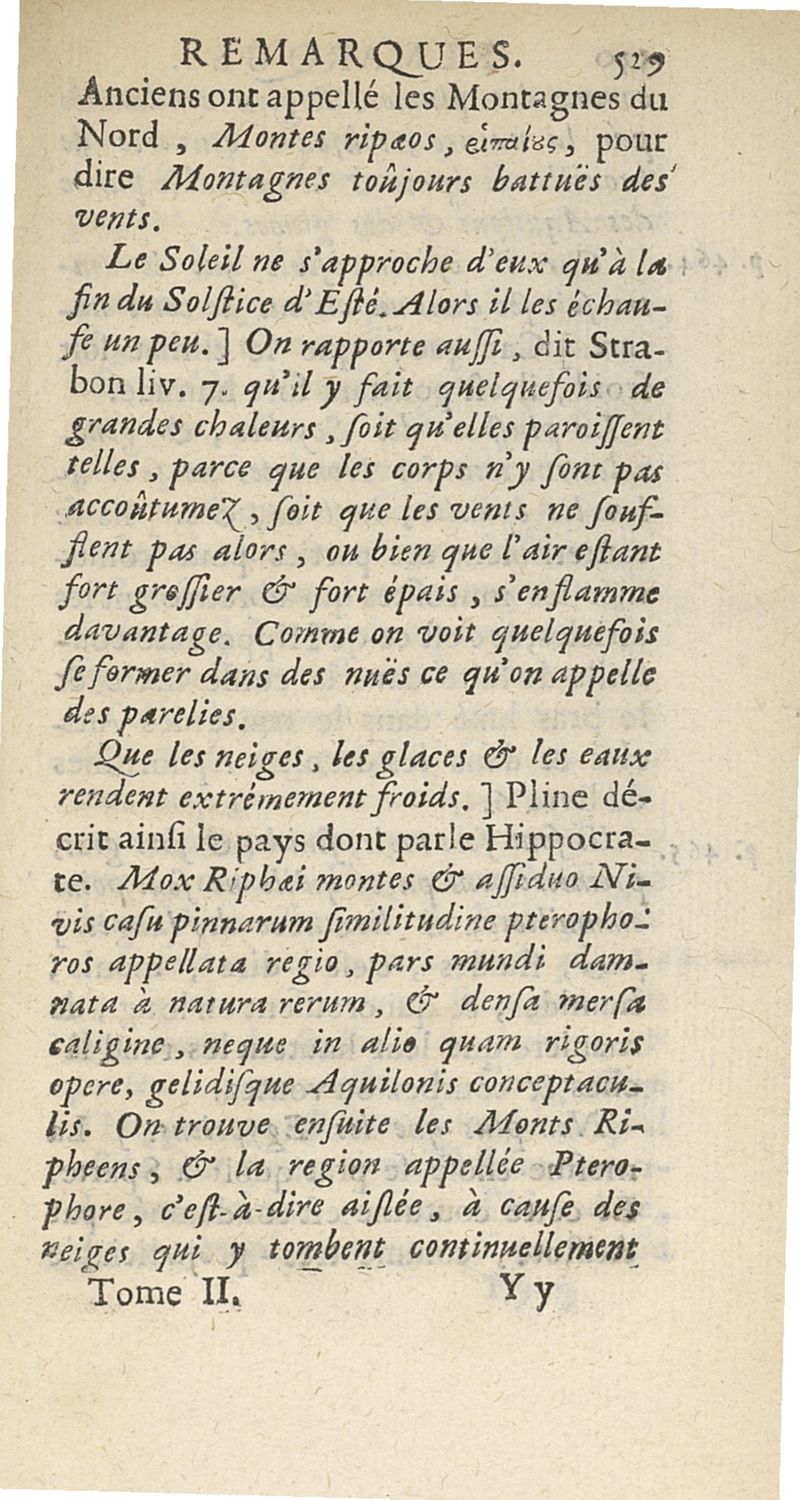 REMARQUES. 529
Anciens ont appellé les Montagnes du
Nord , Montes ripæos, ῥιπαίους, pour
dire Montagnes toûjours battuës des
vents.
Le Soleil ne s'approche d'eux qu'à la
fin du Solſtice d'Eſté. Alors il les échau-
fe un peu. ] On rapporte auſſi , dit Stra-
bon liv. 7. qu'il y fait quelquefois de
grandes chaleurs , ſoit qu'elles paroiſſent
telles , parce que les corps n'y ſont pas
accoûtumez , ſoit que les vents ne ſouf-
flent pas alors , ou bien que l'air eſtant
fort groſſier & fort épais , s'enflamme
davantage. Comme on voit quelquefois
ſe former dans des nuës ce qu'on appelle
des parelies.
Que les neiges , les glaces & les eaux
rendent extrémement froids. ] Pline dé-
crit ainſi le pays dont parle Hippocra-
te. Mox Riphæi montes & aſſiduo Ni-
vis caſu pinnarum ſimilitudine pteropho-
ros appellata regio , pars mundi dam-
nata à natura rerum , & denſa merſa
caligine , neque in alio quam rigoris
opere, gelidiſque Aquilonis conceptacu-
lis. On trouve enſuite les Monts Ri-
pheens , & la region appellée Ptero-
phore , c'eſt-à-dire aiſlée , à cauſe des
neiges qui y tombent continuellement
Tome II. Y y